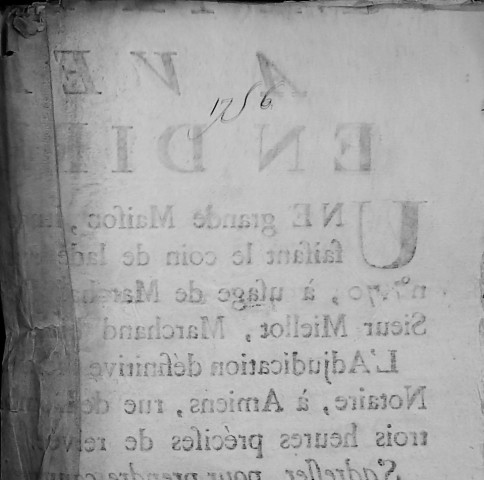 A VE
1756
EN DI
UNE grande Maiſon,
faiſant le coin de lad
n°. 70, à uſage de March
Sieur Miellot, Marchand
L'Adjudication définitive
Notaire, à Amiens, rue de
trois heures préciſes de
S'adreſſer, pour prendre